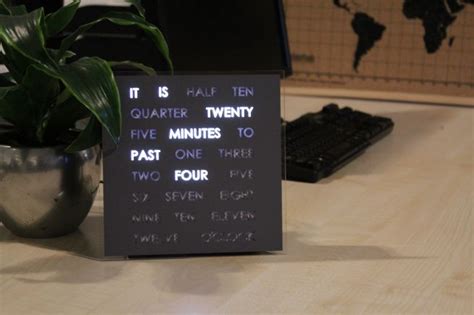 IT IS HALF TEN
QUARTER TWENTY
FIVE MINUTES TO
PAST ONE THREE
TWO FOUR FIVE
SIX SEVEN EIGHT
NINE TEN ELEVEN
TWELVE O'CLOCK